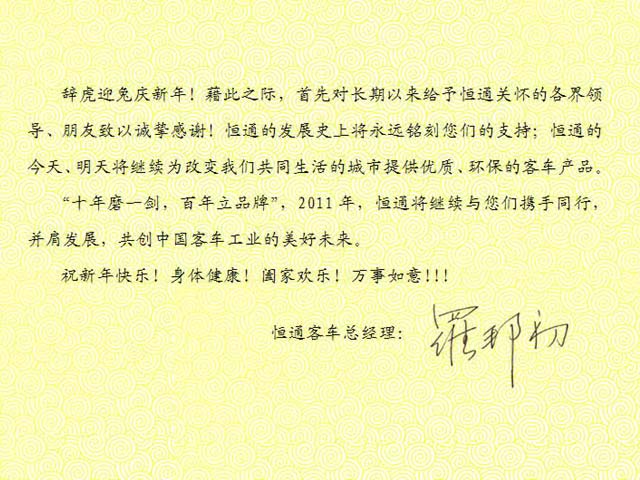 辞虎迎兔庆新年！藉此之际，首先对长期以来给予恒通关怀的各界领
导、朋友致以诚挚感谢！恒通的发展史上将永远铭刻您们的支持；恒通的
今天、明天将继续为改变我们共同生活的城市提供优质、环保的客车产品。
“十年磨一剑，百年立品牌”，2011年，恒通将继续与您们携手同行，
并肩发展，共创中国客车工业的美好未来。
祝新年快乐！身体健康！阖家欢乐！万事如意!!!
恒通客车总经理：羅邦初